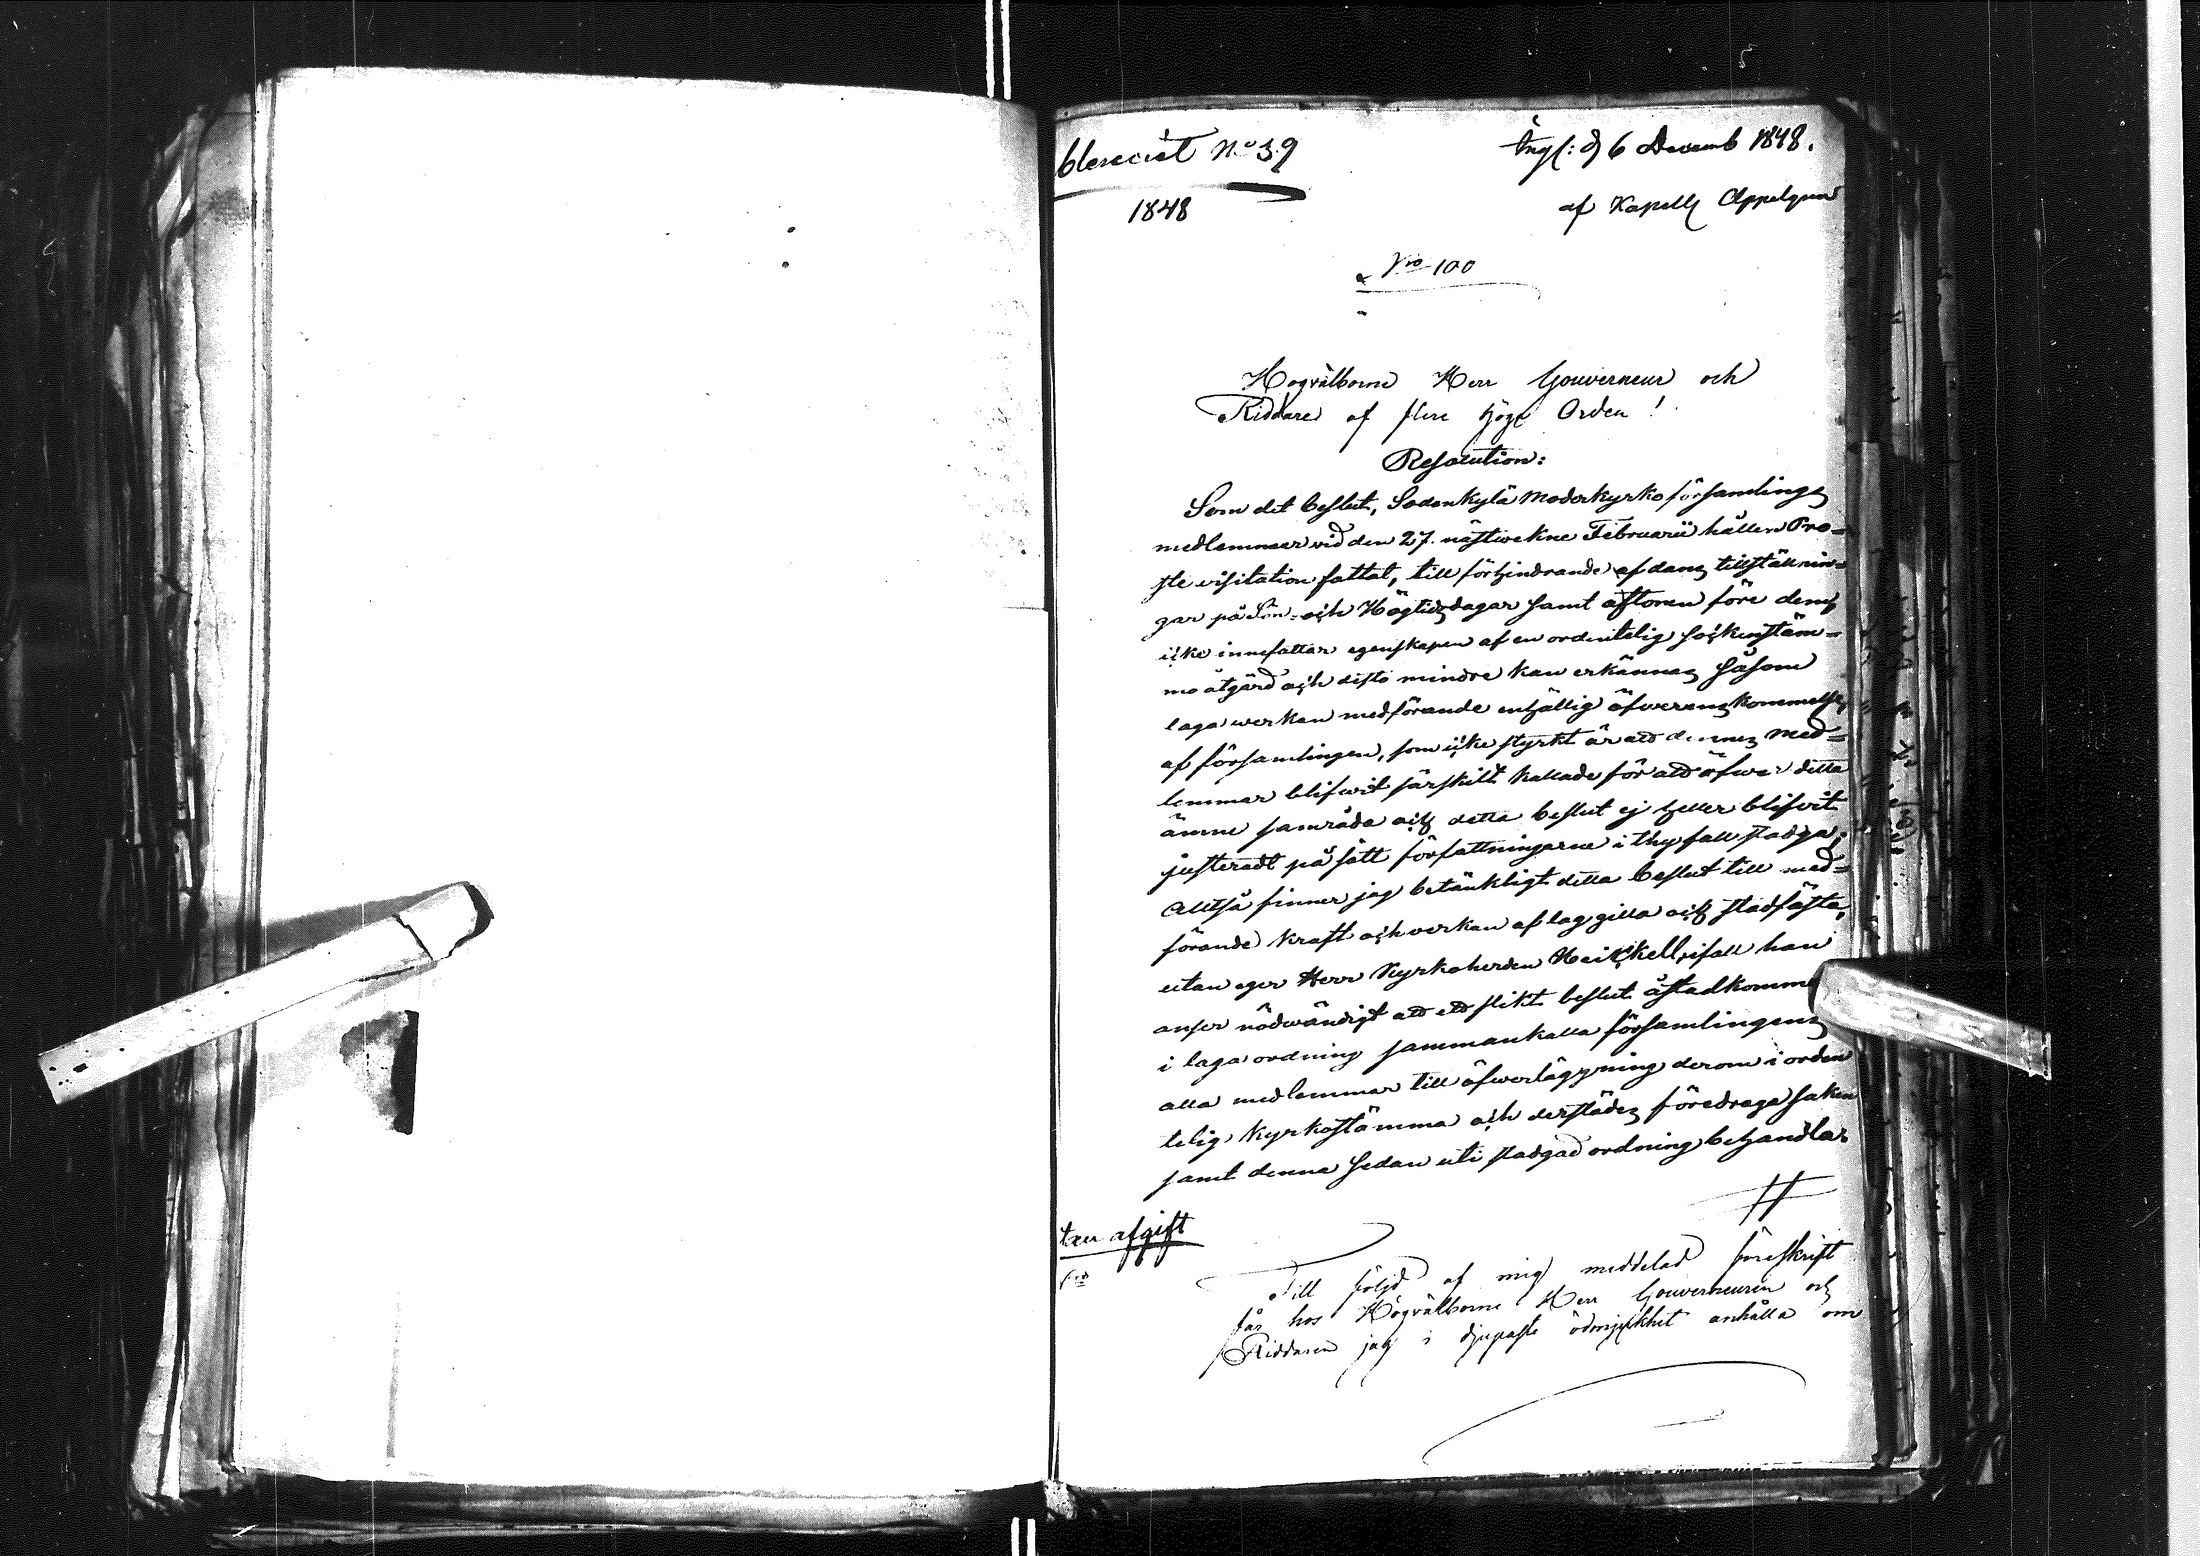 No 39
1848
Ingl: d 6 Decemb 1848.
af Kapell Appelgren
No 100
Högvälborne Herr Gouverneur och
Riddare af flere höga Orden!
Resolution:
Som det beslut, Sodankylä Moderkyrko församlings
medlemmar vid den 27. nästwekne Februarii hållen Pro-
ste visitation fattat, till förhindrande af dans tillställnin-
gar på Sön- och Högtidsdagar samt aftonen före dem,
icke innefattar egenskapen af en ordentelig sockenstäm-
mo åtgärd och disto mindre kan erkännas såsom
laga werkan medförande enhällig öfwerenskommelse
af församlingen, som icke styrkt är att dennes med-
lemmar blifwit särskilt kallade för att öfwer detta
ämne samråda och detta beslut ej heller blifvit
justeradt på sätt författningarne i thy fall stadga;
Alltså finner jag betänkligt detta beslut till med-
förande kraft och verkan af lag gilla och stadfästa,
utan eger Herr Kyrkoherden Heickell, ifall han
anser nödwändigt att ett slikt beslut åstadkomma
i laga ordning sammankalla församlingens
alla medlemmar till öfwerläggning derom i orden
telig Kyrkostämma och derstädes föredraga saken
samt denna sedan uti stadgad ordning behandla.
tan afgift
Till följd af mig meddelad föreskrift
får hos Högvälborne Herr Gouverneuren och
Riddaren jag i djupaste ödmjukhet anhålla om